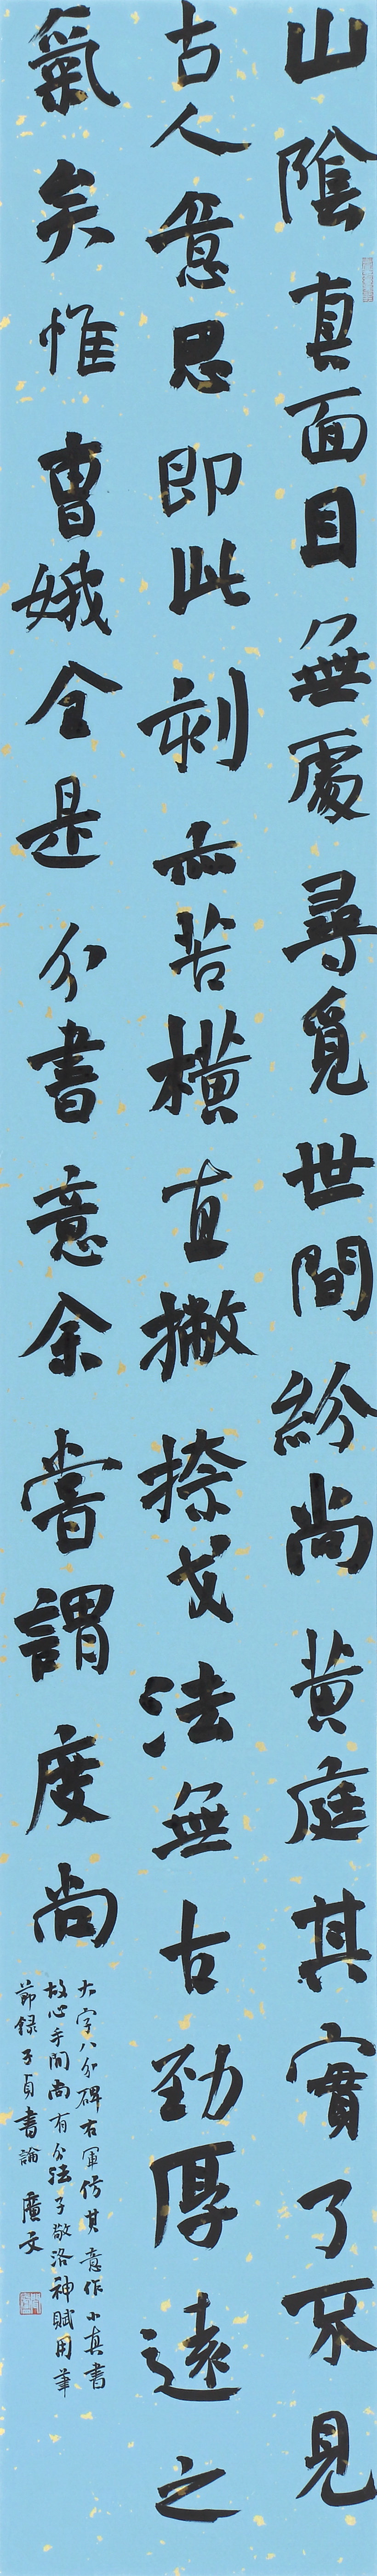 山陰真面目無處尋覓世間紛尚黃庭其實了不見
古人意思即此刻亦苦橫直撇捺戈法無古勁厚遠之
氣矣惟曹娥全是分書意余嘗謂度尚
大字八分碑右軍仿其意作小真書
故心手間尚有分法子敬洛神賦用筆
節錄子貞書論 廣文